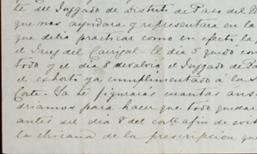 te del Juzgado de Distrito de Paso del N
que nos ayudara y representara en la
que debia practicar como en efecto la
el Juez del Carrizal. El dia 5 quedo con
todo y el dia 8 devolvió el Juzgado de Pa
el exhorto ya cumplimentado a la S
Corte. Ya te figurarás cuantas ans
driamos para hacer que todo quedar
antes del dia 8 del cort. a fin de evit
la chicana de la prescripcion que